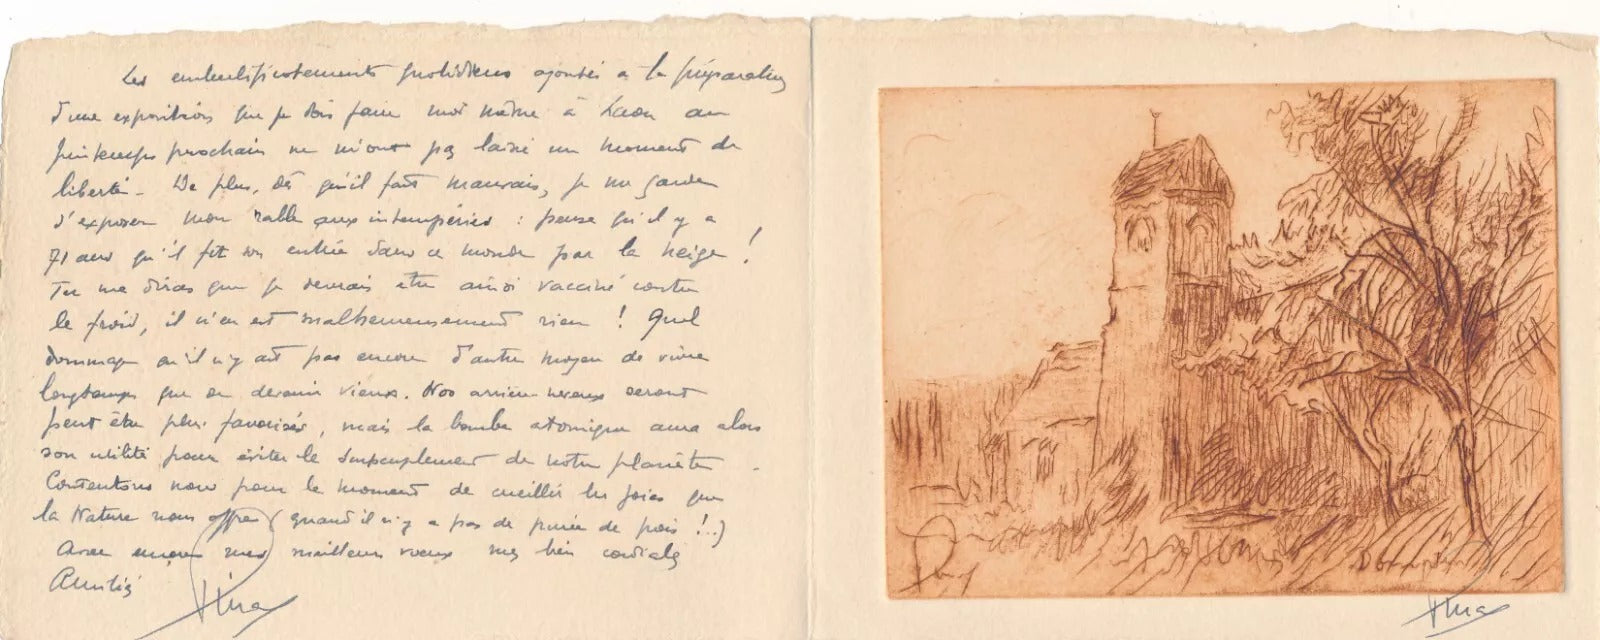 Les emberlificotements quotidiens ajoutés à la préparation
d'une exposition que je dois faire moi même à Laon au
printemps prochain ne m'ont pas laissé un moment de
liberté - De plus, dès qu'il fait mauvais, je me garde
d'exposer mon râble aux intempéries : pense qu'il y a
71 ans qu'il fit son entrée dans ce monde par la neige !
Tu me diras que je devrais être ainsi vacciné contre
le froid, il n'en est malheureusement rien ! Quel
dommage qu'il n'y ait pas encore d'autre moyen de vivre
longtemps que de devenir vieux. Nos arrière-neveux seront
peut être plus favorisés, mais la bombe atomique aura alors
son utilité pour éviter le surpeuplement de notre planète.
Contentons nous pour le moment de cueillir les joies que
la Nature nous offre (quand il n'y a pas de purée de pois !..)
Avec encore mes meilleurs vœux mes bien cordiales
Amitiés